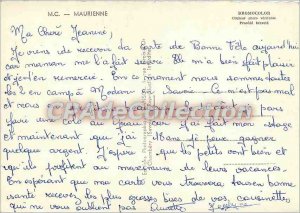 M.C. — MAURIENNE
KROMOCOLOR
Ma Chère Jeanine,
Je viens de recevoir ta carte de Bonne Fête aujourd'hui
car maman me l'a fait suivre. Elle m'a bien fait plaisir
et je t'en remercie. En ce moment nous sommes toutes
les 2 en camp à Modane Savoie. Ce n'est pas mal
et nous
faire une colo au j'ai fait mon stage
et maintenant que j'ai 18 ans je peux gagner
quelque argent. J'espère que les petits vont bien et
qu'ils profitent au maximum de leurs vacances.
En espérant que ma carte vous trouvera tous en bonne
santé recevez les plus grosses bises de vos cousinettes
qui ne vous oublient pas.